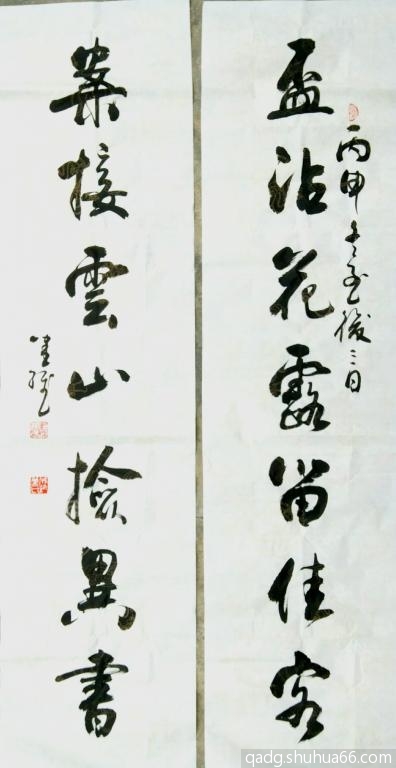 丙申冬至後三日
盃沾花露留佳客
案接雲山撿異書
qadg.shuhua66.com